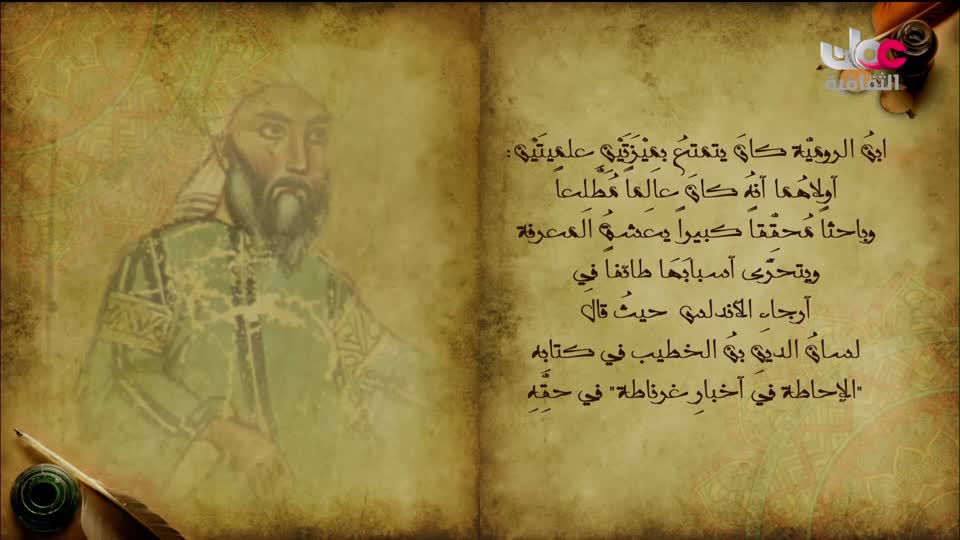 عمان
الثقافية
ابنُ الروميّة كانَ يتمتعُ بمَيْزَتَيْنِ علميتَيْنِ:
أولاهُما أنهُ كانَ عالِماً مُطَّلعاً
وباحثاً مُحقِّقاً كبيراً يعشقُ المعرفة
ويتحرَّى أسبابَهَا طائفاً في
أرجاءِ الأندلس حيثُ قال
لسانُ الدينِ بنُ الخطيب في كتابِهِ
"الإحاطة في أخبارِ غرناطة" في حقِّهِ